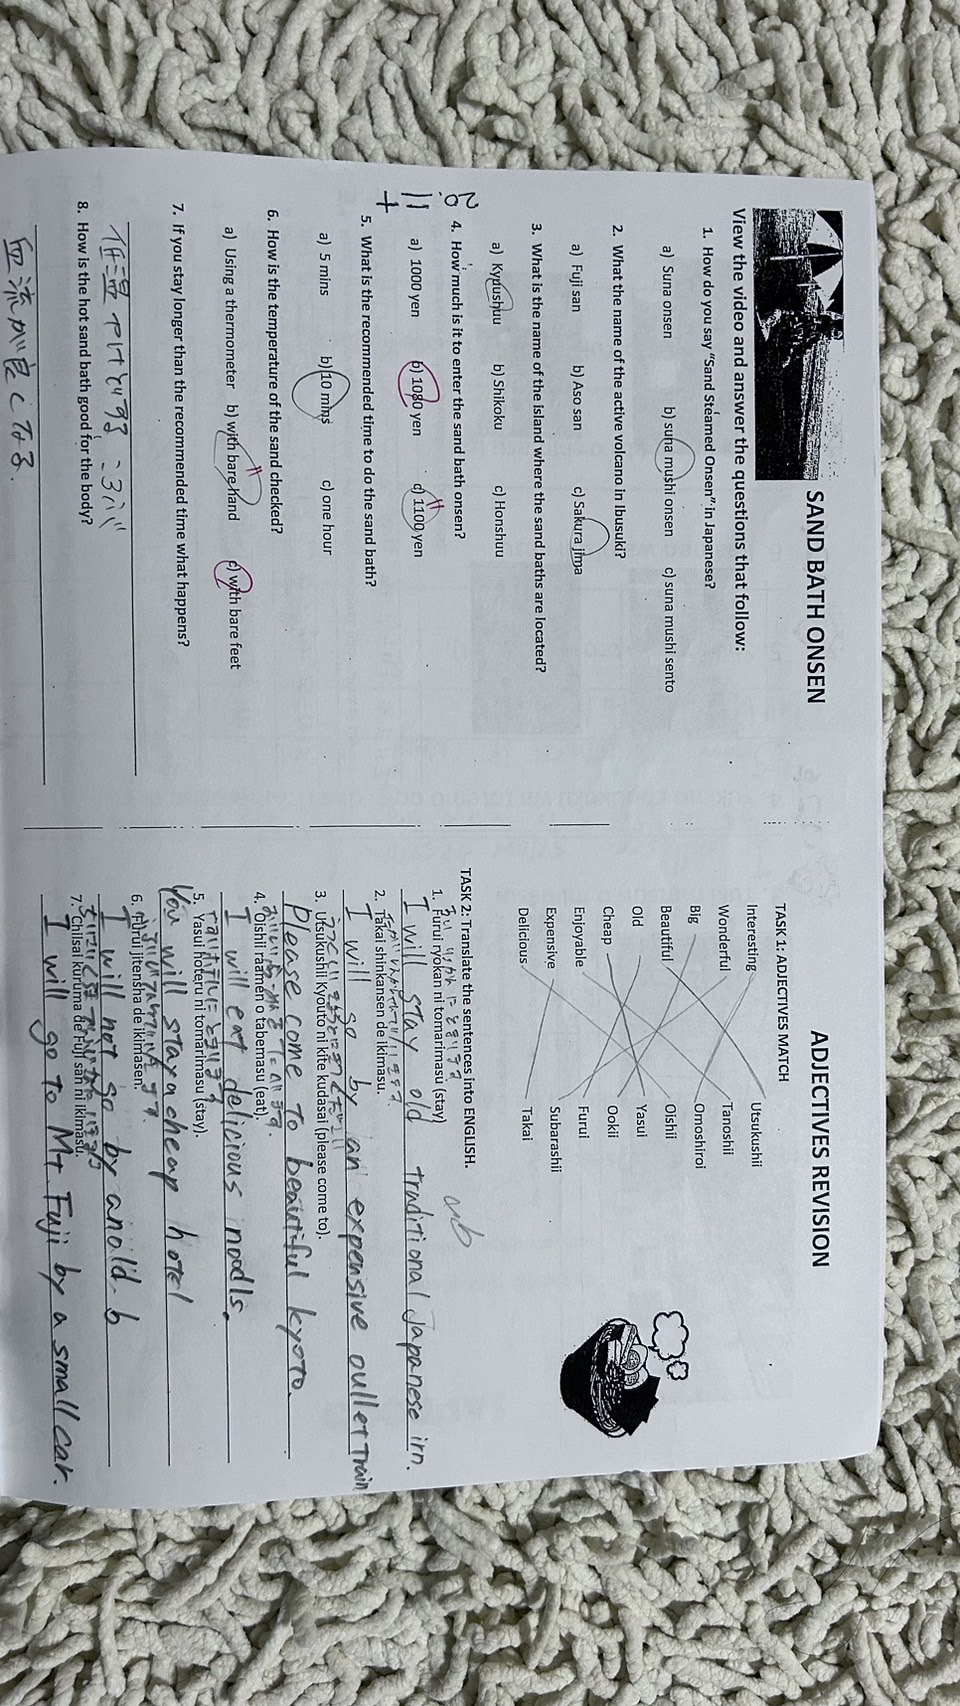 SAND BATH ONSEN
View the video and answer the questions that follow:
1. How do you say "Sand Steamed Onsen" in Japanese?
a) Suna onsen b) suna mushi onsen c) suna mushi sento
2. What the name of the active volcano in Ibusuki?
a) Fuji san b) Aso san c) Sakura jima
3. What is the name of the Island where the sand baths are located?
a) Kyuushuu b) Shikoku c) Honshuu
4. How much is it to enter the sand bath onsen?
a) 1000 yen b) 1080 yen c) 1100 yen
5. What is the recommended time to do the sand bath?
a) 5 mins b) 10 mins c) one hour
6. How is the temperature of the sand checked?
a) Using a thermometer b) with bare hand c) with bare feet
7. If you stay longer than the recommended time what happens?
低温
8. How is the hot sand bath good for the body?
血流が良くなる.
ADJECTIVES REVISION
TASK 1: ADJECTIVES MATCH
Interesting Utsukushii
Wonderful Tanoshii
Big Omoshiroi
Beautiful Oishii
Old Yasui
Cheap Ookii
Enjoyable Furui
Expensive Subarashii
Delicious Takai
TASK 2: Translate the sentences into ENGLISH.
1. Furui ryokan ni tomarimasu (stay)
I will stay old traditional Japanese irn.
2. Takai shinkansen de ikimasu.
I will go by an expensive bullet train
3. Utsukushii Kyouto ni kite kudasai (please come to).
Please come to beautiful kyoto.
4. Oishii raamen o tabemasu (eat).
I will eat delicious noodls.
5. Yasui hoteru ni tomarimasu (stay).
You will stay a cheap hotel
6. Furui jitensha de ikimasen.
I will not go by an old b
7. Chiisai kuruma de Fuji san ni ikimasu.
I will go to Mt Fuji by a small car.